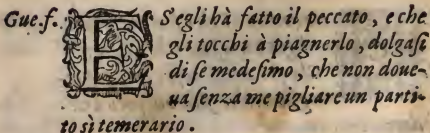 Gue.ſ. ES'egli hà fatto il peccato, e che
gli tocchi à piagnerlo, dolgaſi
di ſe medeſimo, che non doue-
ua ſenza me pigliare un parti-
to sì temerario.